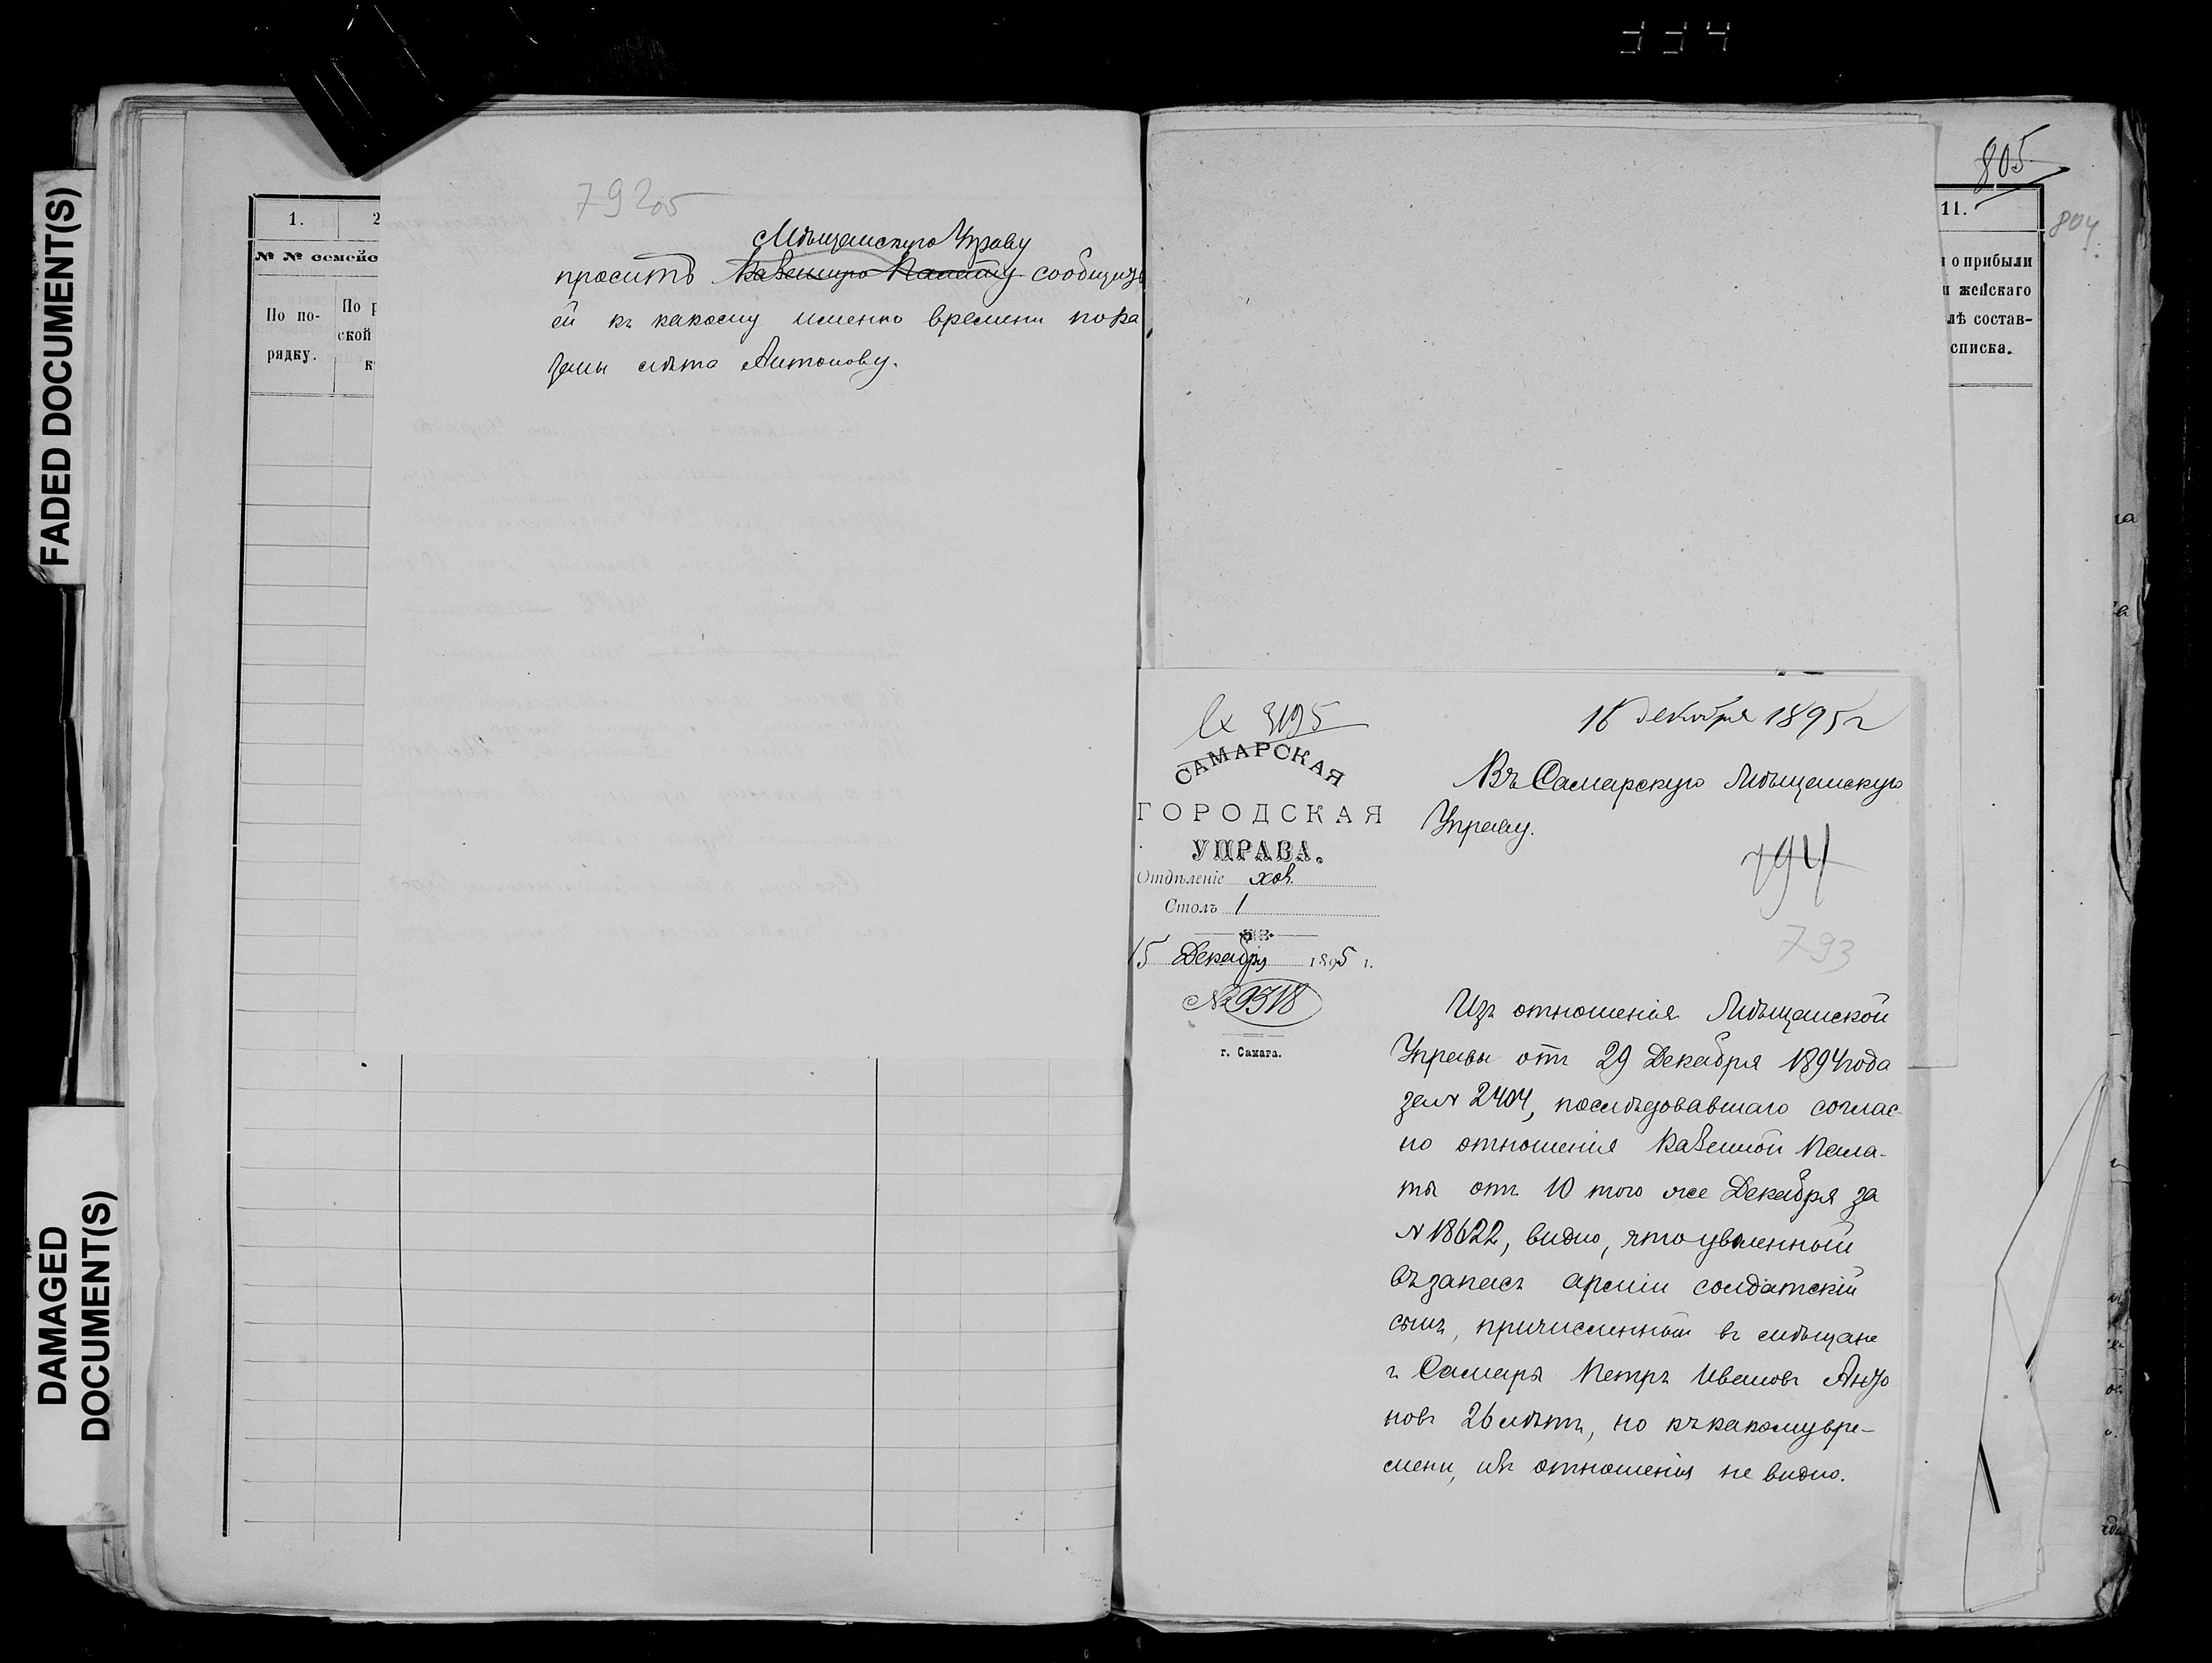 334
FADED DOCUMENT(S)
DAMAGED
DOCUMENT(S)
1.
2
№ № семейс
По по-
рядку.
По р
ской
к
79205
Мѣщанскую Управу
проситъ Казенную Палату сообщить
ей къ какому именно времени пока
заны лѣта Антонову.
805
804
11.
о прибыли
и женскаго
лѣ состав-
списка.
Вх 3195
САМАРСКАЯ
ГОРОДСКАЯ
УПРАВА.
Отдѣленіе хоз.
Столъ 1
15 Декабря 1895 г.
№ 9318
г. Самара.
16 декабря 1895 г
Въ Самарскую Мѣщанскую
Управу.
794
793
Изъ отношенія Мѣщанской
Управы отъ 29 Декабря 1894 года
за № 2404, послѣдовавшаго соглас-
но отношенія Казенной Пала-
ты отъ 10 того же Декабря за
№ 18622, видно, что уволенный
въ запасъ арміи солдатскій
сынъ, причисленный въ мѣщане
г. Самары Петръ Ивановъ Анто
новъ 26 лѣтъ, но къ какому вре-
мени, изъ отношенія не видно.